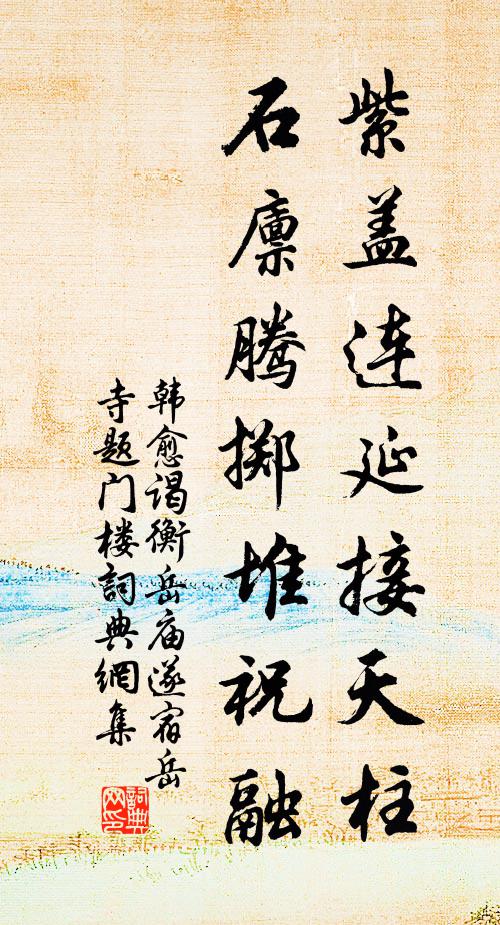 紫盖连延接天柱
石廪腾掷堆祝融
韩愈谒衡岳庙遂宿岳
寺题门楼詞典網集
詞典
网印